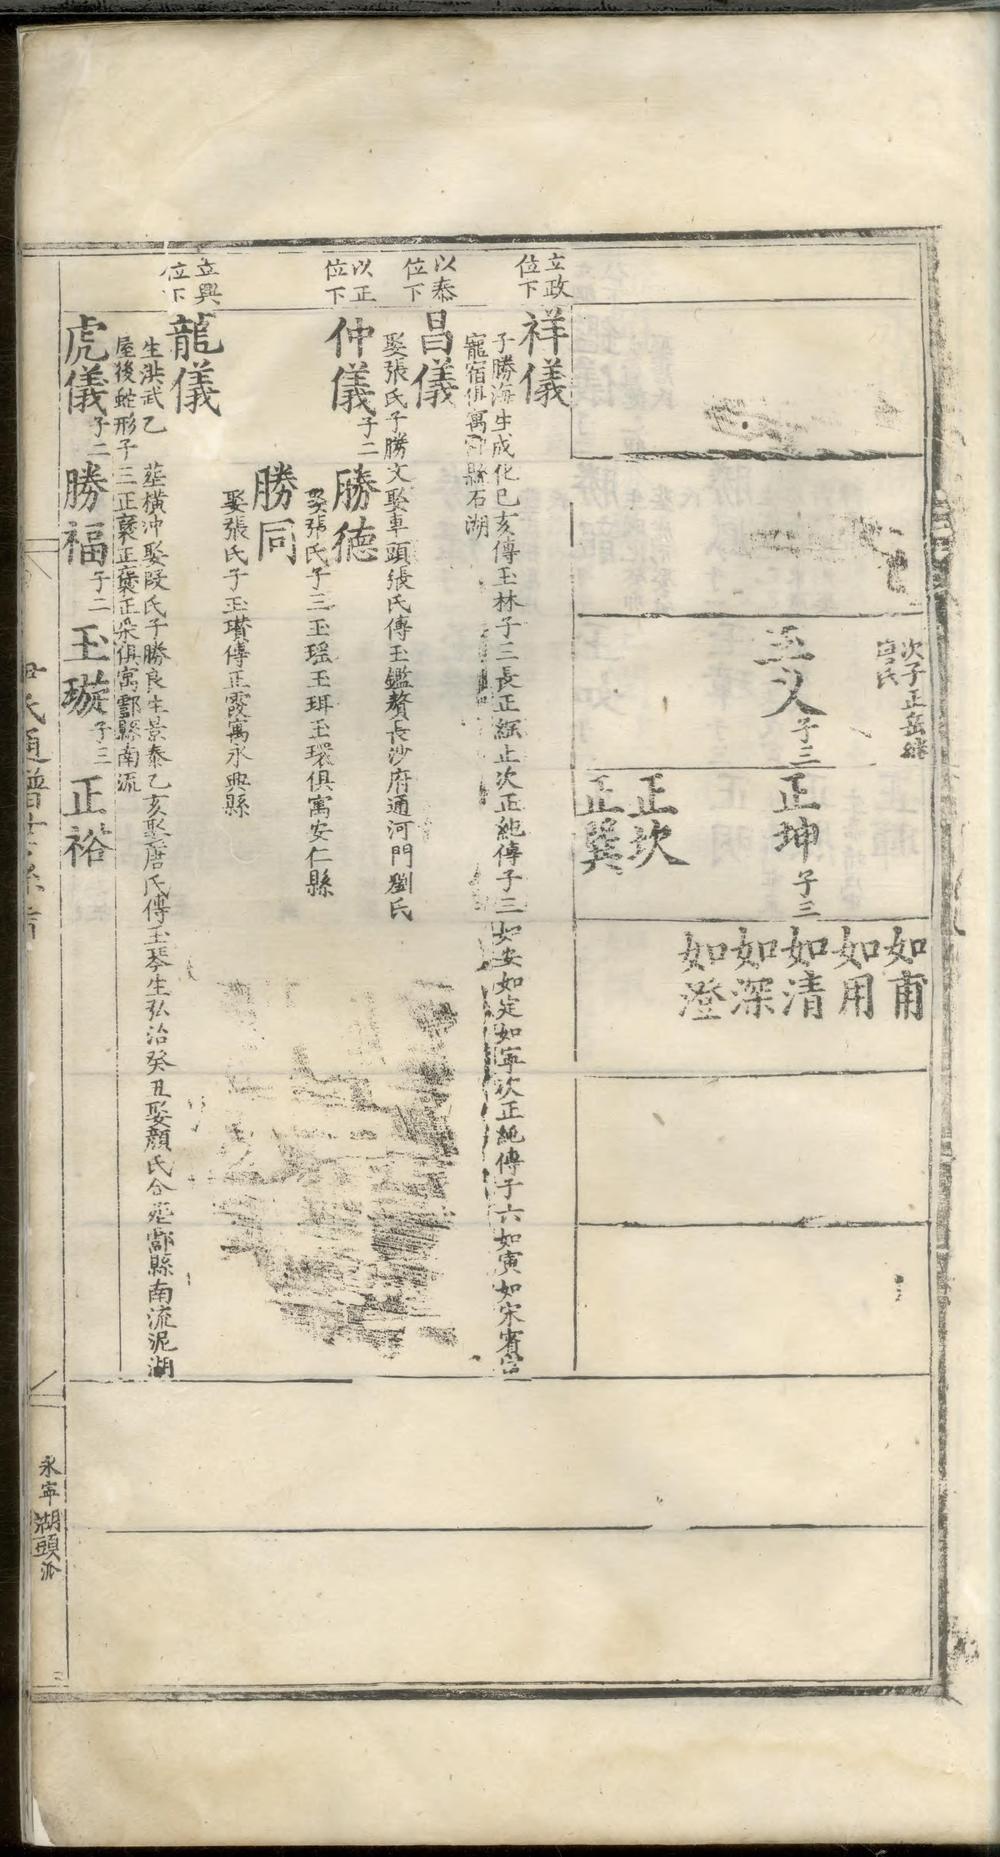 次子正岳繼
唐氏
玉乂子三
正坤子三
正坎
正巽
如甫
如用
如清
如深
如澄
立政
位下
祥儀
子勝海生成化巳亥傳玉林子三長正綱止次正純傳子三如安如定如寧次正純傳子六如寅如宋賓宫
寵宿俱寓縣石湖
以泰
位下
昌儀
娶張氏子勝文娶車頭張氏傳玉鑑贅長沙府通河門劉氏
以正
位下
仲儀子二
勝德
娶張氏子三玉瑶玉珥玉環俱寓安仁縣
勝同
娶張氏子玉瓚傳正霞寓永興縣
立興
位下
龍儀
生洪武乙
葬橫冲娶段氏子勝良生景泰乙亥娶唐氏傳玉琴生弘治癸丑娶顔氏合葬酃縣南流泥湖
屋後蛇形子三正正正俱寓酃縣南流
虎儀子二
勝福子二
玉璇子三
正裕
尹氏通譜
永寧湖頭派